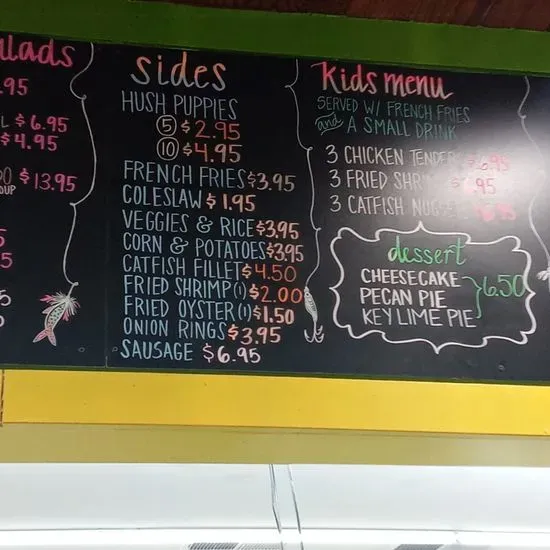 .95
$6.95
$4.95
$13.95
sides
HUSH PUPPIES
⑤ $2.95
⑩ $4.95
FRENCH FRIES $3.95
COLESLAW $1.95
VEGGIES & RICE $3.95
CORN & POTATOES $3.95
CATFISH FILLET $4.50
FRIED SHRIMP (1) $2.00
FRIED OYSTER (1) $1.50
ONION RINGS $3.95
SAUSAGE $6.95
Kids menu
SERVED W/ FRENCH FRIES
and A SMALL DRINK
3 CHICKEN
3 FRIED
3 CATFISH
dessert
CHEESECAKE
PECAN PIE 6.50
KEY LIME PIE